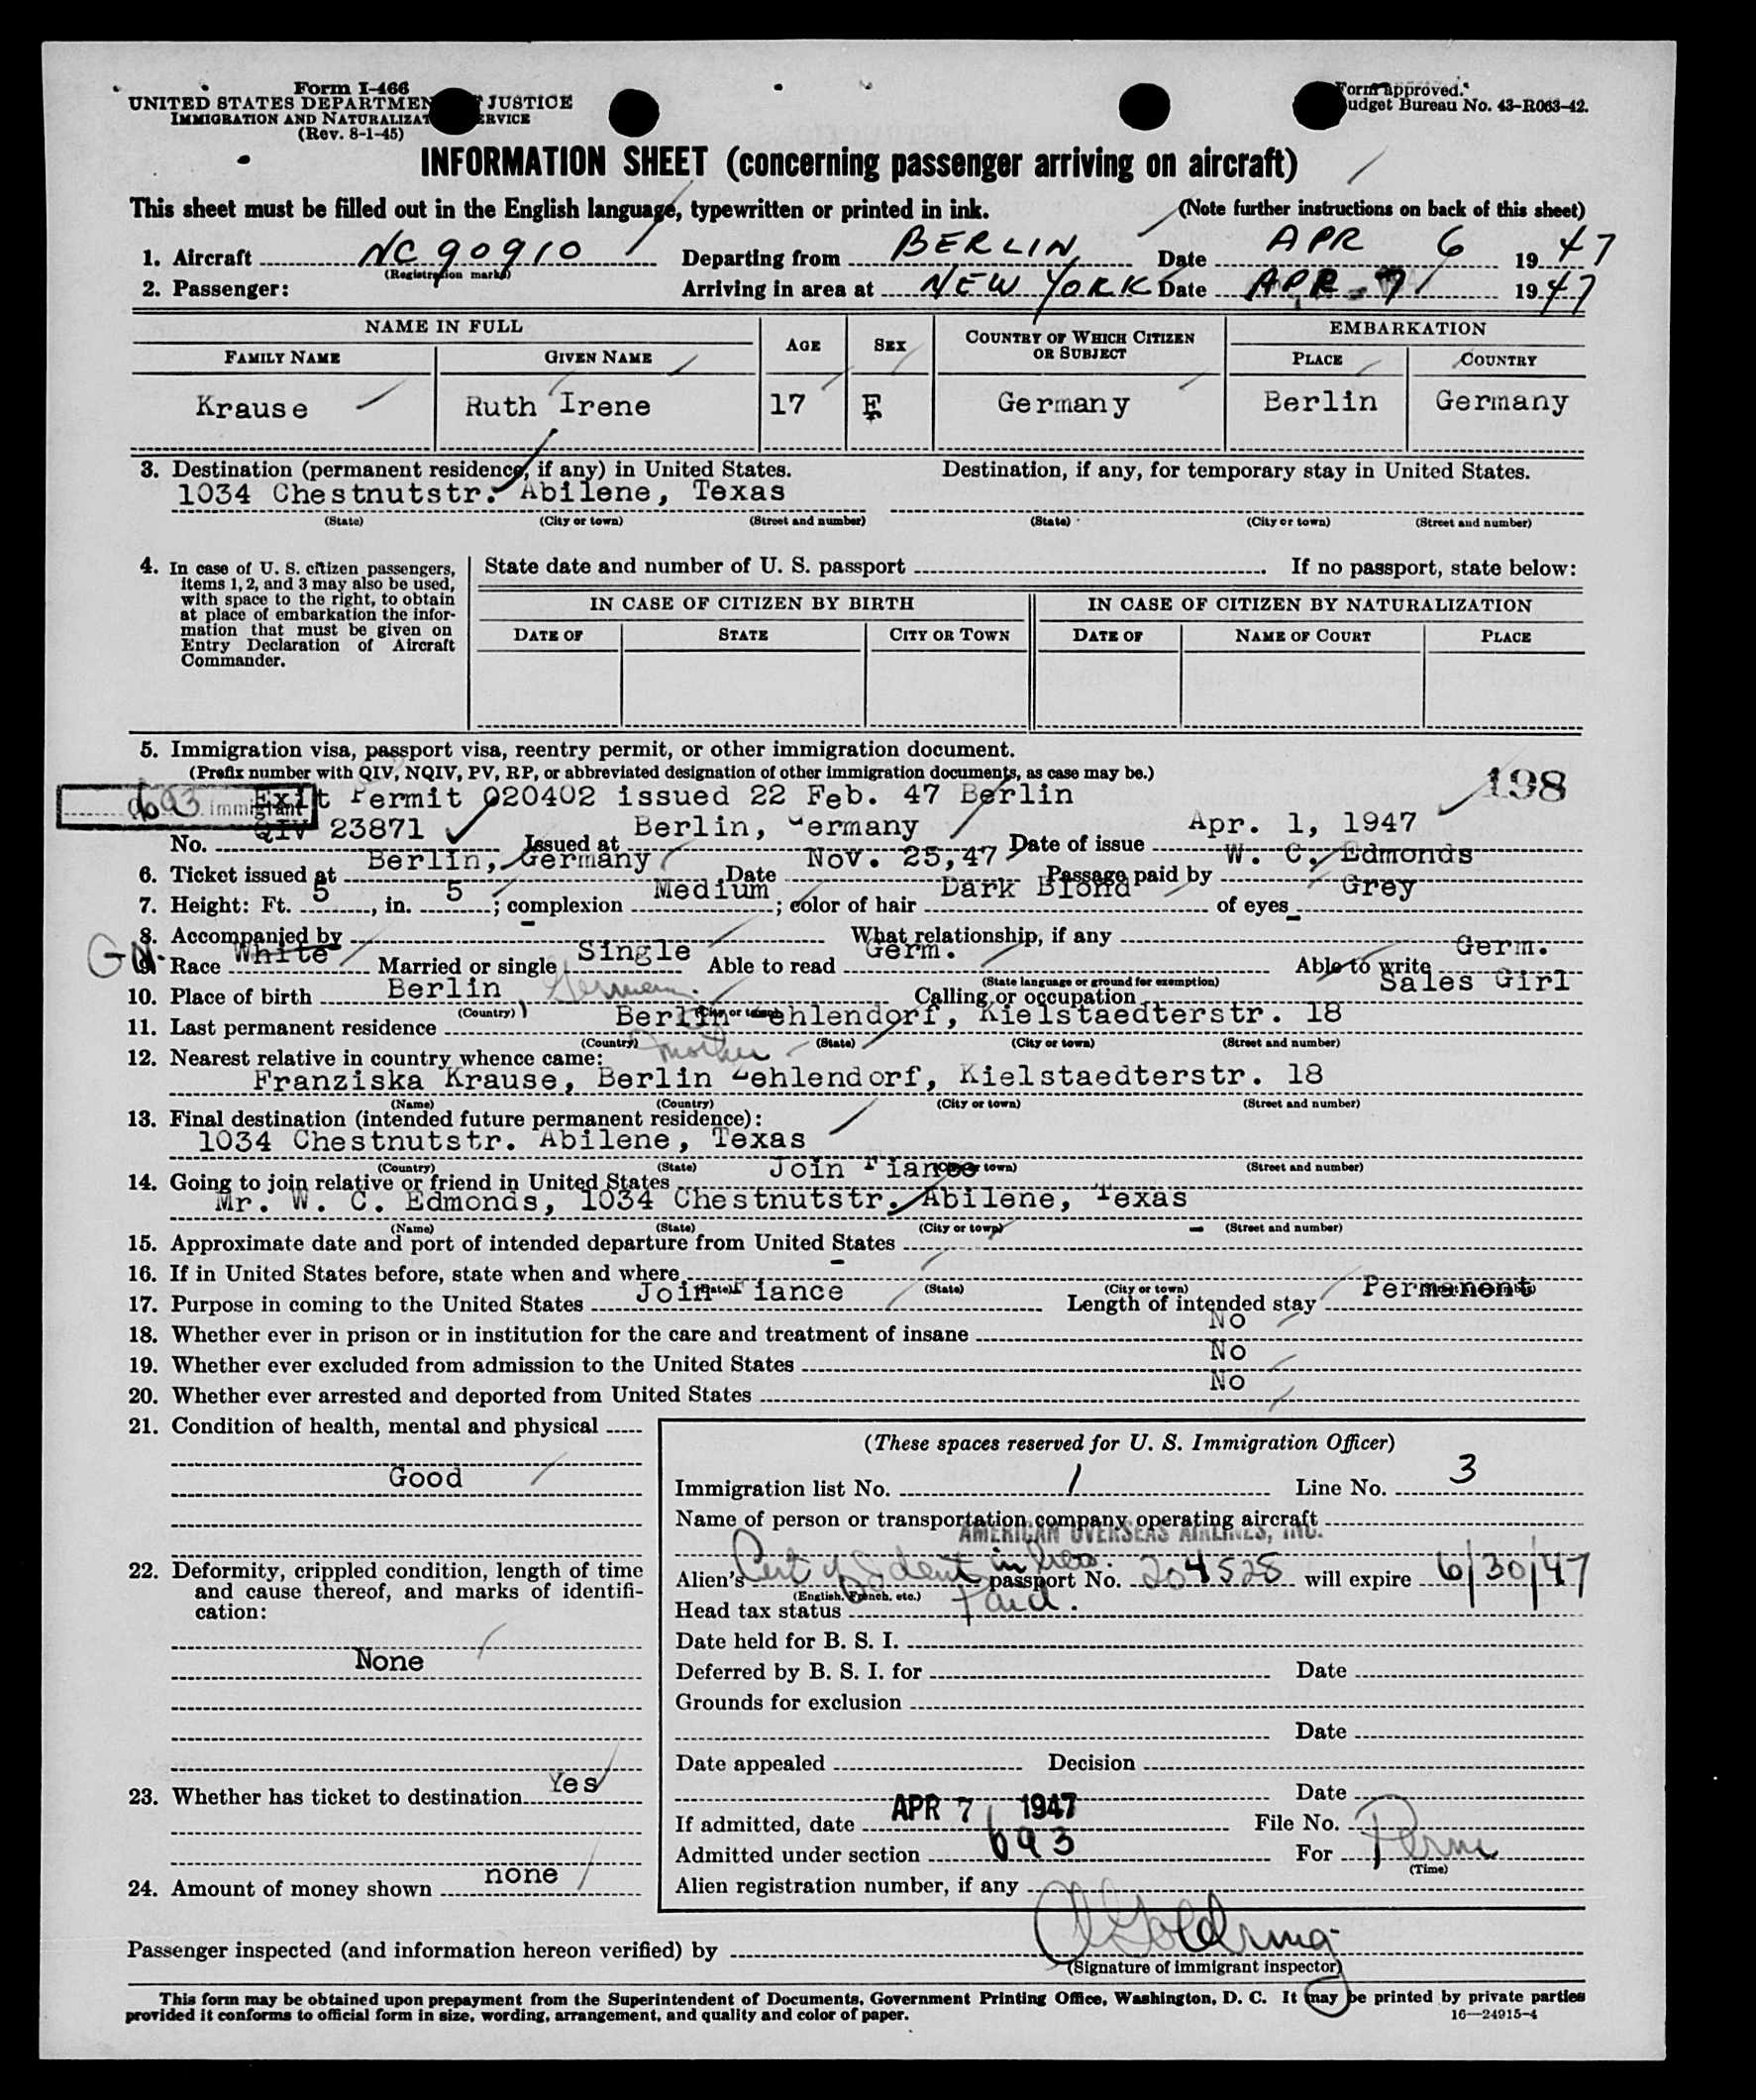 Form I-466
UNITED STATES DEPARTMENT OF JUSTICE
IMMIGRATION AND NATURALIZATION SERVICE
(Rev. 8-1-45)
Form approved.
Budget Bureau No. 43-R063-42.
INFORMATION SHEET (concerning passenger arriving on aircraft)
This sheet must be filled out in the English language, typewritten or printed in ink. (Note further instructions on back of this sheet)
1. Aircraft NC 90910 Departing from BERLIN Date APR 6 1947
(Registration marks)
2. Passenger: Arriving in area at NEW YORK Date APR 7 1947
NAME IN FULL AGE SEX COUNTRY OF WHICH CITIZEN OR SUBJECT EMBARKATION
FAMILY NAME GIVEN NAME PLACE COUNTRY
Krause Ruth Irene 17 F Germany Berlin Germany
3. Destination (permanent residence, if any) in United States. Destination, if any, for temporary stay in United States.
1034 Chestnutstr. Abilene, Texas
(State) (City or town) (Street and number) (State) (City or town) (Street and number)
4. In case of U. S. citizen passengers,
items 1, 2, and 3 may also be used,
with space to the right, to obtain
at place of embarkation the infor-
mation that must be given on
Entry Declaration of Aircraft
Commander.
State date and number of U. S. passport If no passport, state below:
IN CASE OF CITIZEN BY BIRTH IN CASE OF CITIZEN BY NATURALIZATION
DATE OF STATE CITY OR TOWN DATE OF NAME OF COURT PLACE
5. Immigration visa, passport visa, reentry permit, or other immigration document.
(Prefix number with QIV, NQIV, PV, RP, or abbreviated designation of other immigration documents, as case may be.)
198
6a3 immigrant
Exit Permit 020402 issued 22 Feb. 47 Berlin
No. QIV 23871 Issued at Berlin, Germany Date of issue Apr. 1, 1947
6. Ticket issued at Berlin, Germany Date Nov. 25,47 Passage paid by W. C. Edmonds
7. Height: Ft. 5, in. 5; complexion Medium; color of hair Dark Blond of eyes Grey
8. Accompanied by - What relationship, if any
9. Race White Married or single Single Able to read Germ. Able to write Germ.
(State language or ground for exemption)
10. Place of birth Berlin Germany. Calling or occupation Sales Girl
(Country) (City or town)
11. Last permanent residence Berlin Zehlendorf, Kielstaedterstr. 18
(Country) (State) (City or town) (Street and number)
12. Nearest relative in country whence came: mother
Franziska Krause, Berlin Zehlendorf, Kielstaedterstr. 18
(Name) (Country) (City or town) (Street and number)
13. Final destination (intended future permanent residence):
1034 Chestnutstr. Abilene, Texas
(Country) (State) (City or town) (Street and number)
14. Going to join relative or friend in United States Join Fiance
Mr. W. C. Edmonds, 1034 Chestnutstr. Abilene, Texas
(Name) (State) (City or town) (Street and number)
15. Approximate date and port of intended departure from United States -
16. If in United States before, state when and where -
(Date) (State) (City or town) (Street and number)
17. Purpose in coming to the United States Join Fiance Length of intended stay Permanent
18. Whether ever in prison or in institution for the care and treatment of insane No
19. Whether ever excluded from admission to the United States No
20. Whether ever arrested and deported from United States No
21. Condition of health, mental and physical
Good
22. Deformity, crippled condition, length of time
and cause thereof, and marks of identifi-
cation:
None
23. Whether has ticket to destination Yes
24. Amount of money shown none
(These spaces reserved for U. S. Immigration Officer)
Immigration list No. 1 Line No. 3
Name of person or transportation company operating aircraft
AMERICAN OVERSEAS AIRLINES, INC.
Alien's Cert of Ident in lieu passport No. 204525 will expire 6/30/47
(English, French, etc.)
Head tax status Paid.
Date held for B. S. I.
Deferred by B. S. I. for Date
Grounds for exclusion
Date
Date appealed Decision
Date
If admitted, date APR 7 1947 File No.
Admitted under section 6a3 For Perm
(Time)
Alien registration number, if any
Passenger inspected (and information hereon verified) by
(Signature of immigrant inspector)
This form may be obtained upon prepayment from the Superintendent of Documents, Government Printing Office, Washington, D. C. It may be printed by private parties
provided it conforms to official form in size, wording, arrangement, and quality and color of paper. 16—24915-4